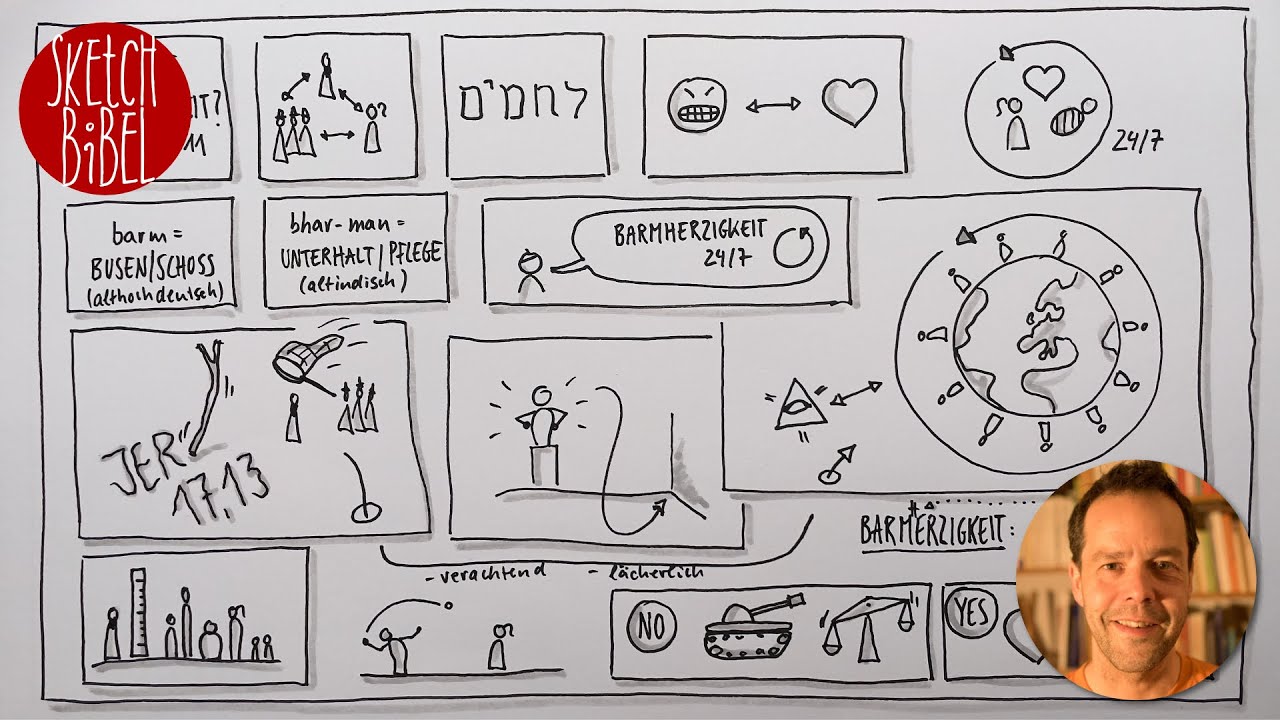 SKETCH
BiBEL
IT?
11
לחמים
24/7
barm =
BUSEN/SCHOSS
(althochdeutsch)
bhar-man =
UNTERHALT/PFLEGE
(altindisch)
BARMHERZIGKEIT
24/7
JER
17,13
BARMHERZIGKEIT:
- verachtend - lächerlich
NO
YES